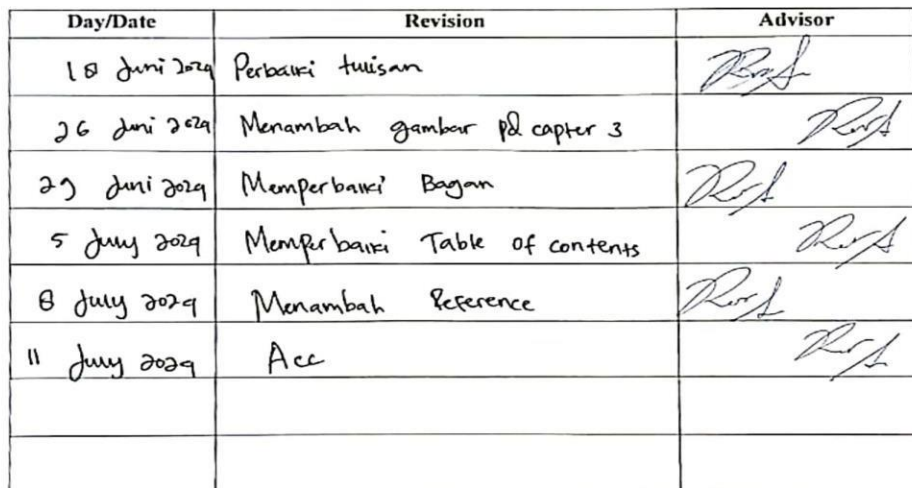 Day/Date Revision Advisor
18 Juni 2024 Perbaiki tulisan
26 Juni 2024 Menambah gambar pd capter 3
29 Juni 2024 Memperbaiki Bagan
5 July 2024 Memperbaiki Table of contents
8 July 2024 Menambah Reference
11 July 2024 Acc